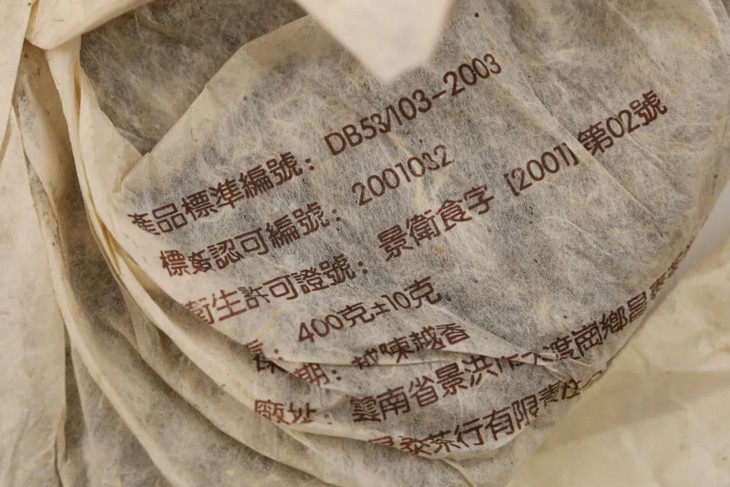 產品標準編號：DB53/103-2003
標簽認可編號：2001032
衛生許可證號：景衛食字［2001］第02號
：400克±10克
期：越陳越香
廠址：雲南省景洪市大渡崗鄉昌泰
茶行有限責任